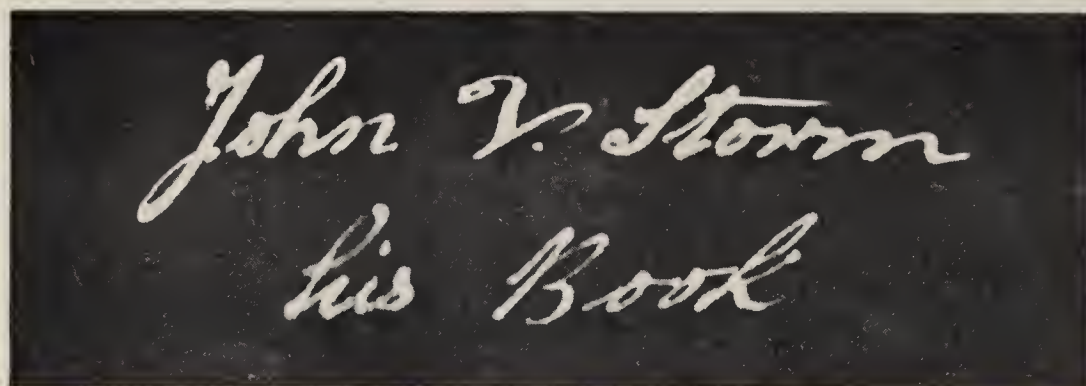 John V. Storm
his Book